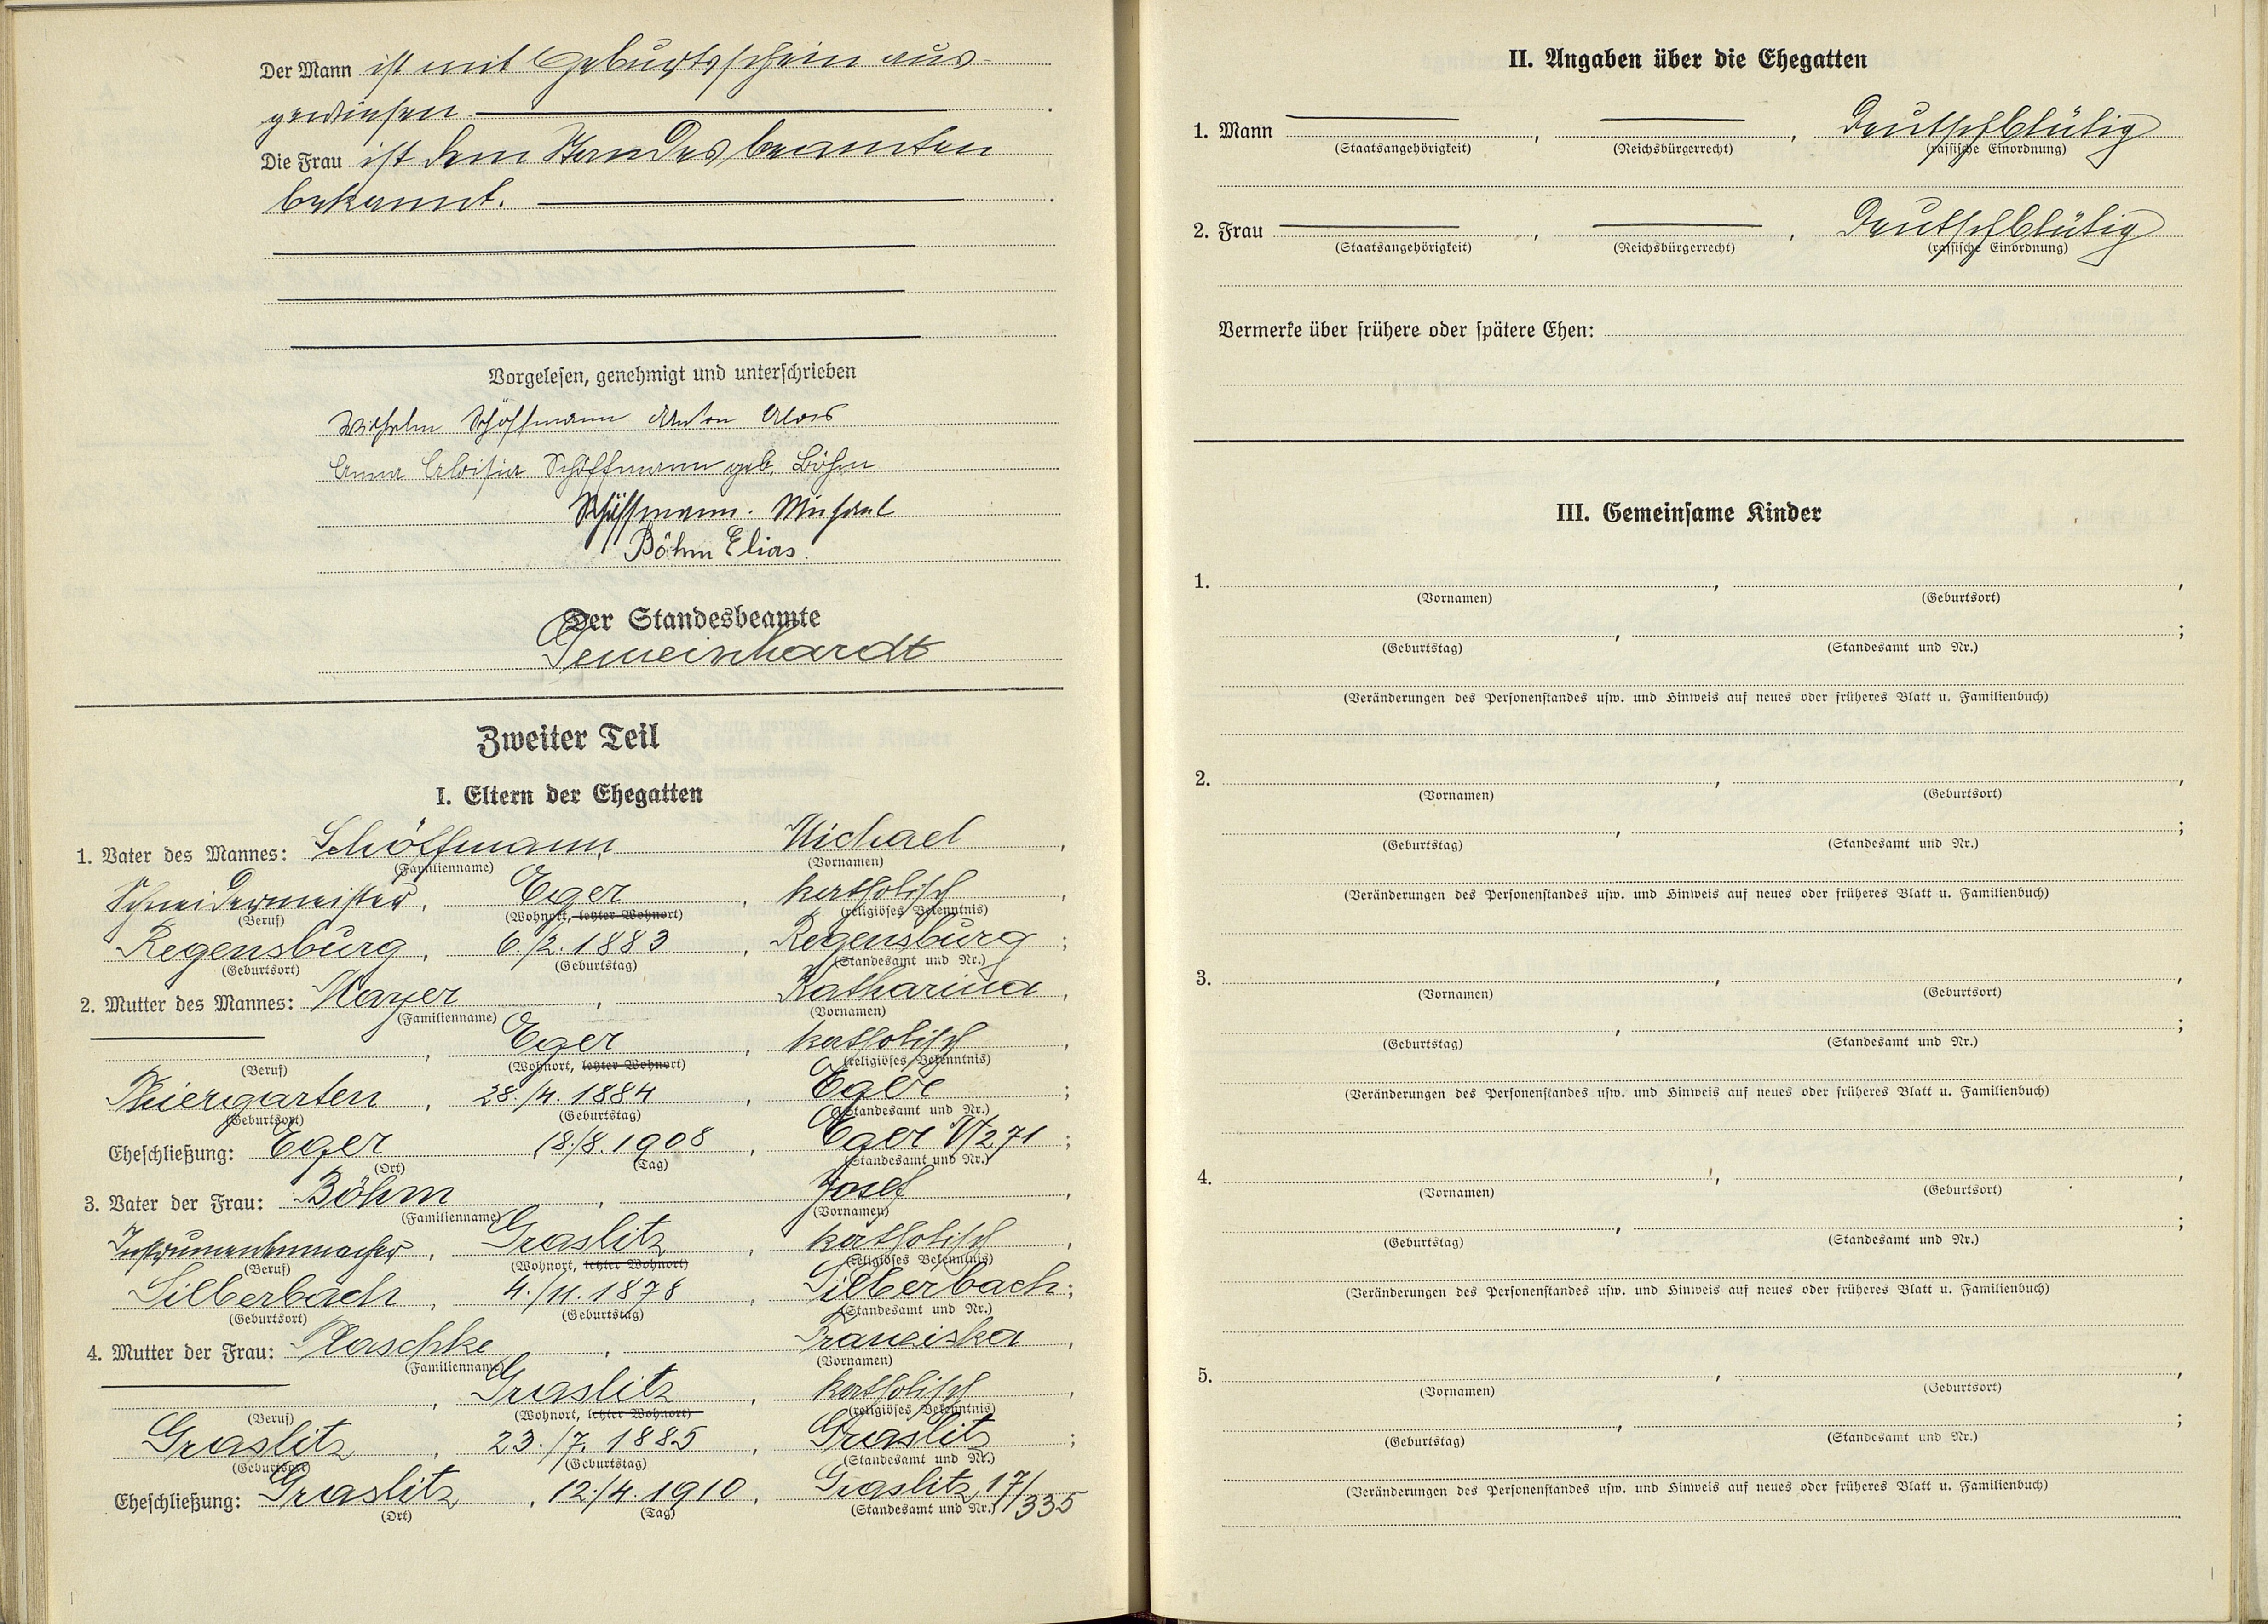 Der Mann ist mit Geburtsschein aus-
gewiesen.
Die Frau ist dem Standesbeamten
bekannt.
Vorgelesen, genehmigt und unterschrieben
Wilhelm Schöffmann Anton Alois
Anna Aloisia Schöffmann geb. Böhm
Schöffmann. Michael
Böhm Elias
Der Standesbeamte
Gemeinhardt
Zweiter Teil
I. Eltern der Ehegatten
1. Vater des Mannes: Schöffmann, Michael,
(Familienname) (Vornamen)
Schneidermeister, Eger, katholisch,
(Beruf) (Wohnort, letzter Wohnort) (religiöses Bekenntnis)
Regensburg, 6./2. 1883, Regensburg;
(Geburtsort) (Geburtstag) (Standesamt und Nr.)
2. Mutter des Mannes: Mayer, Katharina,
(Familienname) (Vornamen)
, Eger, katholisch,
(Beruf) (Wohnort, letzter Wohnort) (religiöses Bekenntnis)
Thiergarten, 28./4. 1884, Eger;
(Geburtsort) (Geburtstag) (Standesamt und Nr.)
Eheschließung: Eger, 18./8. 1908, Eger V/271;
(Ort) (Tag) (Standesamt und Nr.)
3. Vater der Frau: Böhm, Josef,
(Familienname) (Vornamen)
Instrumentenmacher, Graslitz, katholisch,
(Beruf) (Wohnort, letzter Wohnort) (religiöses Bekenntnis)
Silberbach, 4./11. 1878, Silberbach;
(Geburtsort) (Geburtstag) (Standesamt und Nr.)
4. Mutter der Frau: Plaschke, Franziska,
(Familienname) (Vornamen)
, Graslitz, katholisch,
(Beruf) (Wohnort, letzter Wohnort) (religiöses Bekenntnis)
Graslitz, 23./7. 1885, Graslitz;
(Geburtsort) (Geburtstag) (Standesamt und Nr.)
Eheschließung: Graslitz, 12./4. 1910, Graslitz, 17/335
(Ort) (Tag) (Standesamt und Nr.)
II. Angaben über die Ehegatten
1. Mann , , Deutschblütig
(Staatsangehörigkeit) (Reichsbürgerrecht) (rassische Einordnung)
2. Frau , , Deutschblütig
(Staatsangehörigkeit) (Reichsbürgerrecht) (rassische Einordnung)
Vermerke über frühere oder spätere Ehen:
III. Gemeinsame Kinder
1. , ,
(Vornamen) (Geburtsort)
, ;
(Geburtstag) (Standesamt und Nr.)
(Veränderungen des Personenstandes usw. und Hinweis auf neues oder früheres Blatt u. Familienbuch)
2. , ,
(Vornamen) (Geburtsort)
, ;
(Geburtstag) (Standesamt und Nr.)
(Veränderungen des Personenstandes usw. und Hinweis auf neues oder früheres Blatt u. Familienbuch)
3. , ,
(Vornamen) (Geburtsort)
, ;
(Geburtstag) (Standesamt und Nr.)
(Veränderungen des Personenstandes usw. und Hinweis auf neues oder früheres Blatt u. Familienbuch)
4. , ,
(Vornamen) (Geburtsort)
, ;
(Geburtstag) (Standesamt und Nr.)
(Veränderungen des Personenstandes usw. und Hinweis auf neues oder früheres Blatt u. Familienbuch)
5. , ,
(Vornamen) (Geburtsort)
, ;
(Geburtstag) (Standesamt und Nr.)
(Veränderungen des Personenstandes usw. und Hinweis auf neues oder früheres Blatt u. Familienbuch)